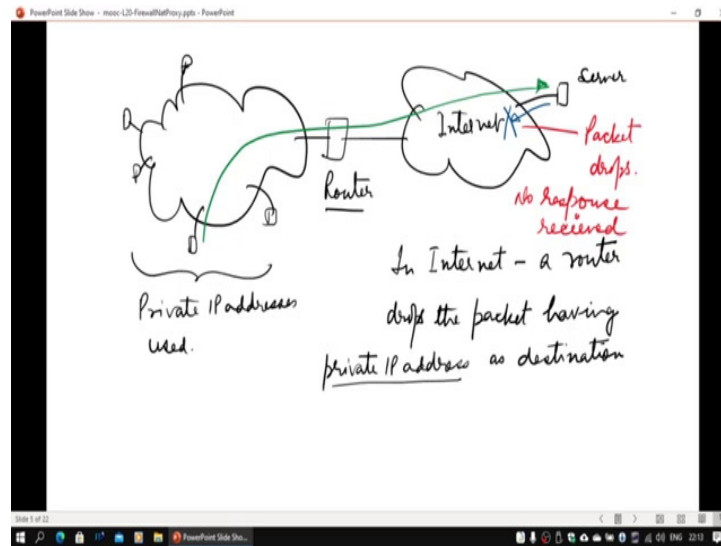 PowerPoint Slide Show - mooc-L20-FirewallNatProxy.pptx - PowerPoint
Server
Internet
Packet
drops.
No response
recieved
Router
Private IP addresses
used.
In Internet - a router
drops the packet having
private IP address as destination
Slide 5 of 22
PowerPoint Slide Sho...
ENG 22:13